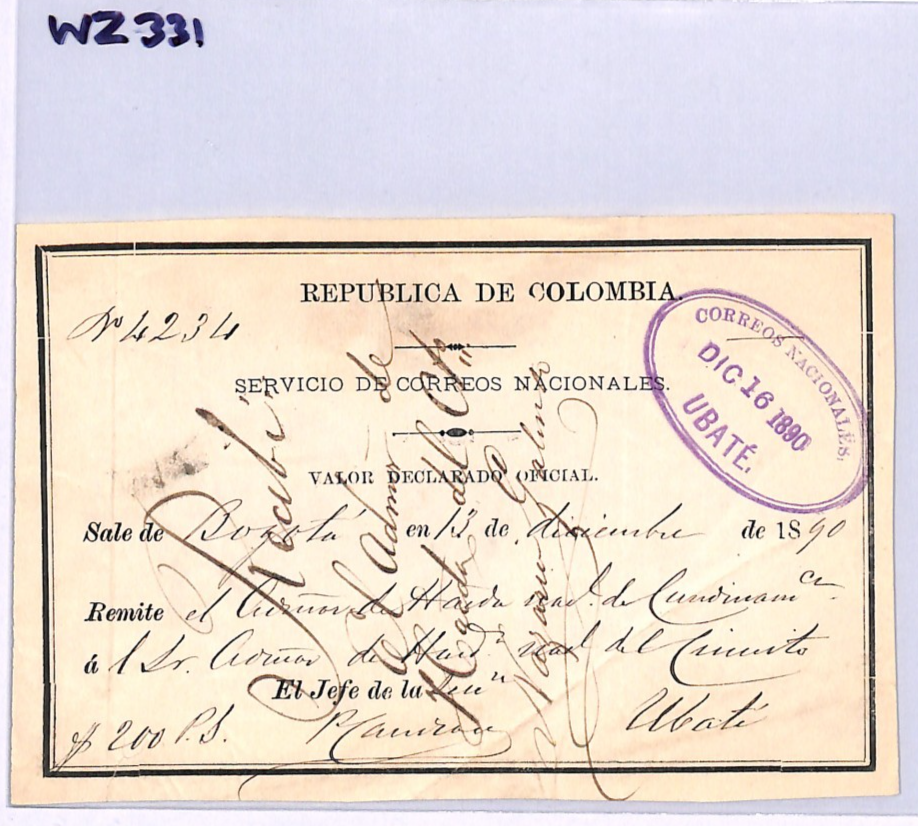 WZ331
REPUBLICA DE COLOMBIA.
Nº 4234
SERVICIO DE CORREOS NACIONALES.
VALOR DECLARADO OFICIAL.
CORREOS NACIONALES.
DIC 16 1890
UBATÉ.
Sale de Bogotá en 13 de diciembre de 1890
Remite el de Hacda nacl. de Cundinamca
á l Sr. de nacl del Circuito
El Jefe de la
$ 200 P.S. Ubaté
Recibí
El Admor de
Hacda del Cto